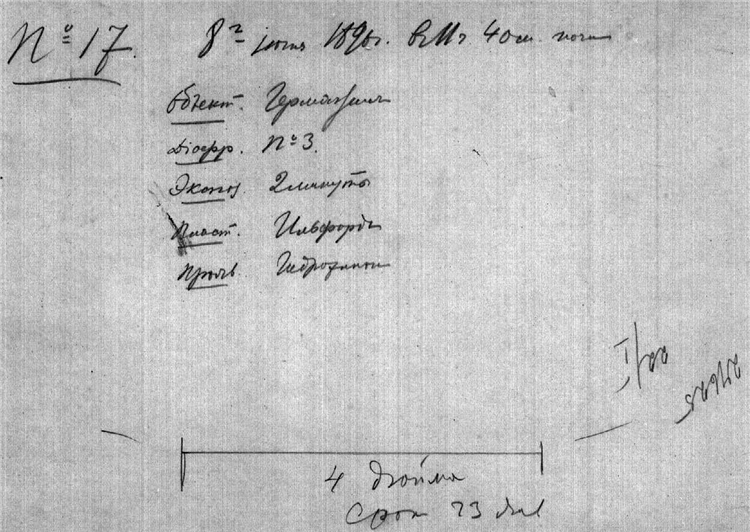 № 17. 8го июля 1896г. в 11ч 40м. ночи
Объект. Германия
Діафр. № 3.
Экспоз. 2 минуты
Пласт. Ильфордъ
Прояв. Гидрохинон
4 дюйма
Срок 23 дек